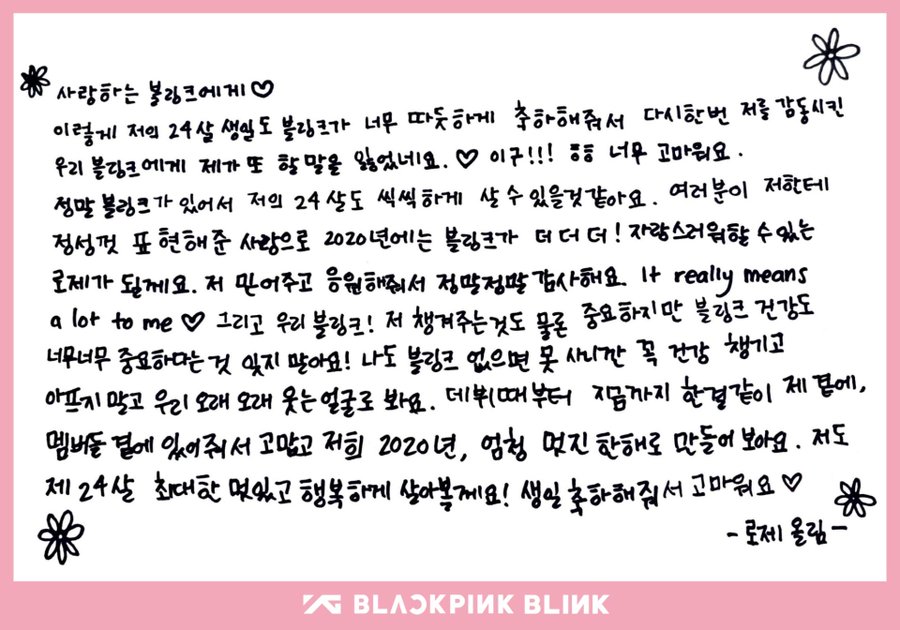 사랑하는 블링크에게♡
이렇게 저의 24살 생일도 블링크가 너무 따듯하게 축하해줘서 다시한번 저를 감동시킨
우리 블링크에게 제가 또 할 말을 잃었네요. ♡ 이구!!! ㅎㅎ 너무 고마워요.
정말 블링크가 있어서 저의 24살도 씩씩하게 살 수 있을것 같아요. 여러분이 저한테
정성껏 표현해준 사랑으로 2020년에는 블링크가 더 더 더! 자랑스러워할 수 있는
로제가 될게요. 저 믿어주고 응원해줘서 정말정말 감사해요. It really means
a lot to me ♡ 그리고 우리 블링크! 저 챙겨주는것도 물론 중요하지만 블링크 건강도
너무너무 중요하다는 것 잊지 말아요! 나도 블링크 없으면 못 사니깐 꼭 건강 챙기고
아프지 말고 우리 오래 오래 웃는 얼굴로 봐요. 데뷔때부터 지금까지 한결같이 제 곁에,
멤버들 곁에 있어줘서 고맙고 저희 2020년, 엄청 멋진 한해로 만들어 보아요. 저도
제 24살 최대한 멋있고 행복하게 살아볼게요! 생일 축하해줘서 고마워요♡
-로제 올림-
YG BLACKPINK BLINK